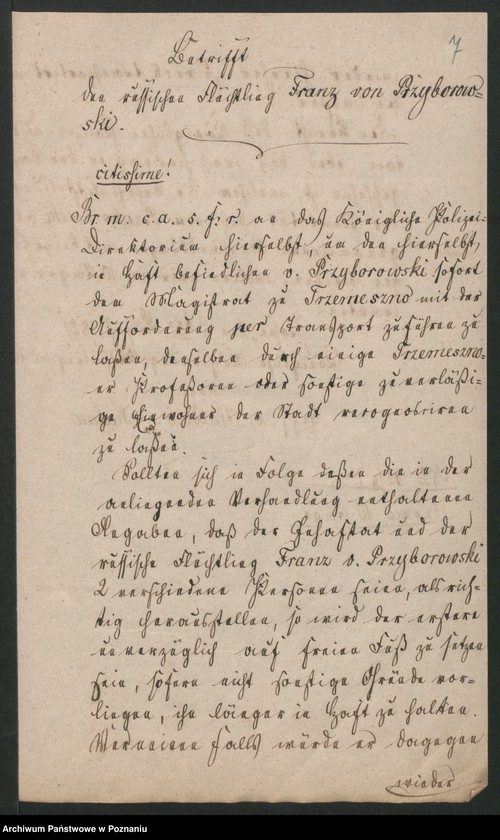 7
Betrifft
den russischen Flüchtling Franz von Przyborow-
ski.
citissime!
Br. m. c. a. s. f. r. an das Königliche Polizei-
Direktorium hierselbst, um den hierselbst
in Haft befindlichen v. Przyborowski sofort
dem Magistrat zu Trzemeszno mit der
Aufforderung per Transport zuführen zu
laßen, denselben durch einige Trzemeszno-
er Profeßoren oder sonstige zuverläßi-
ge Einwohner der Stadt recognosciren
zu laßen.
Sollten sich in Folge deßen die in der
anliegenden Verhandlung enthaltenen
Angaben, daß der Inhaftat und der
russische Flüchtling Franz v. Przyborowski
2 verschiedene Personen seien, als rich-
tig herausstellen, so wird der erstere
unverzüglich auf freien Fuß zu setzen
sein, sofern nicht sonstige Gründe vor-
liegen, ihn länger in Haft zu halten.
Verneinen Falls würde er dagegen
wieder
Archiwum Państwowe w Poznaniu